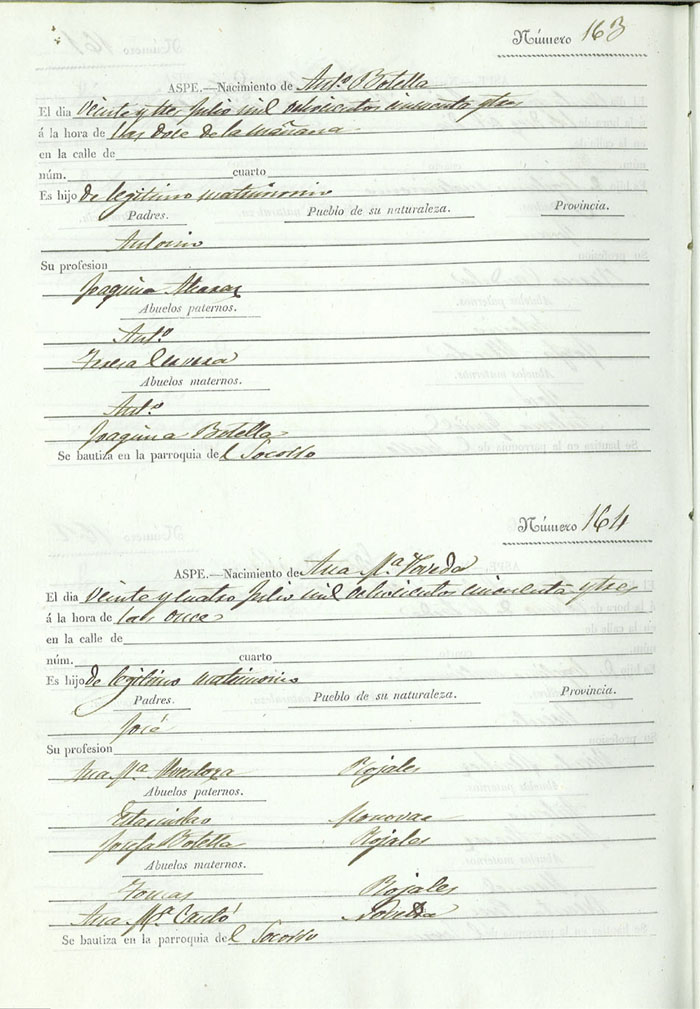 Número 163
ASPE.—Nacimiento de Antº Botella
El dia veinte y tres Julio mil ochocientos cincuenta y tres
á la hora de las doce de la mañana
en la calle de
núm. cuarto
Es hijo de legitimo matrimonio
Padres. Pueblo de su naturaleza. Provincia.
Antonio
Su profesion
Joaquina
Abuelos paternos.
Antº
Teresa
Abuelos maternos.
Antº
Joaquina Botella
Se bautiza en la parroquia de l Socorro
Número 164
ASPE.—Nacimiento de Ana Mª
El dia veinte y cuatro Julio mil ochocientos cincuenta y tres
á la hora de las once
en la calle de
núm. cuarto
Es hijo de legitimo matrimonio
Padres. Pueblo de su naturaleza. Provincia.
José
Su profesion
Ana Mª Mendoza Rojales
Abuelos paternos.
Estanislao Monovar
Josefa Botella Rojales
Abuelos maternos.
Tomas Rojales
Ana Mª Novelda
Se bautiza en la parroquia de l Socorro